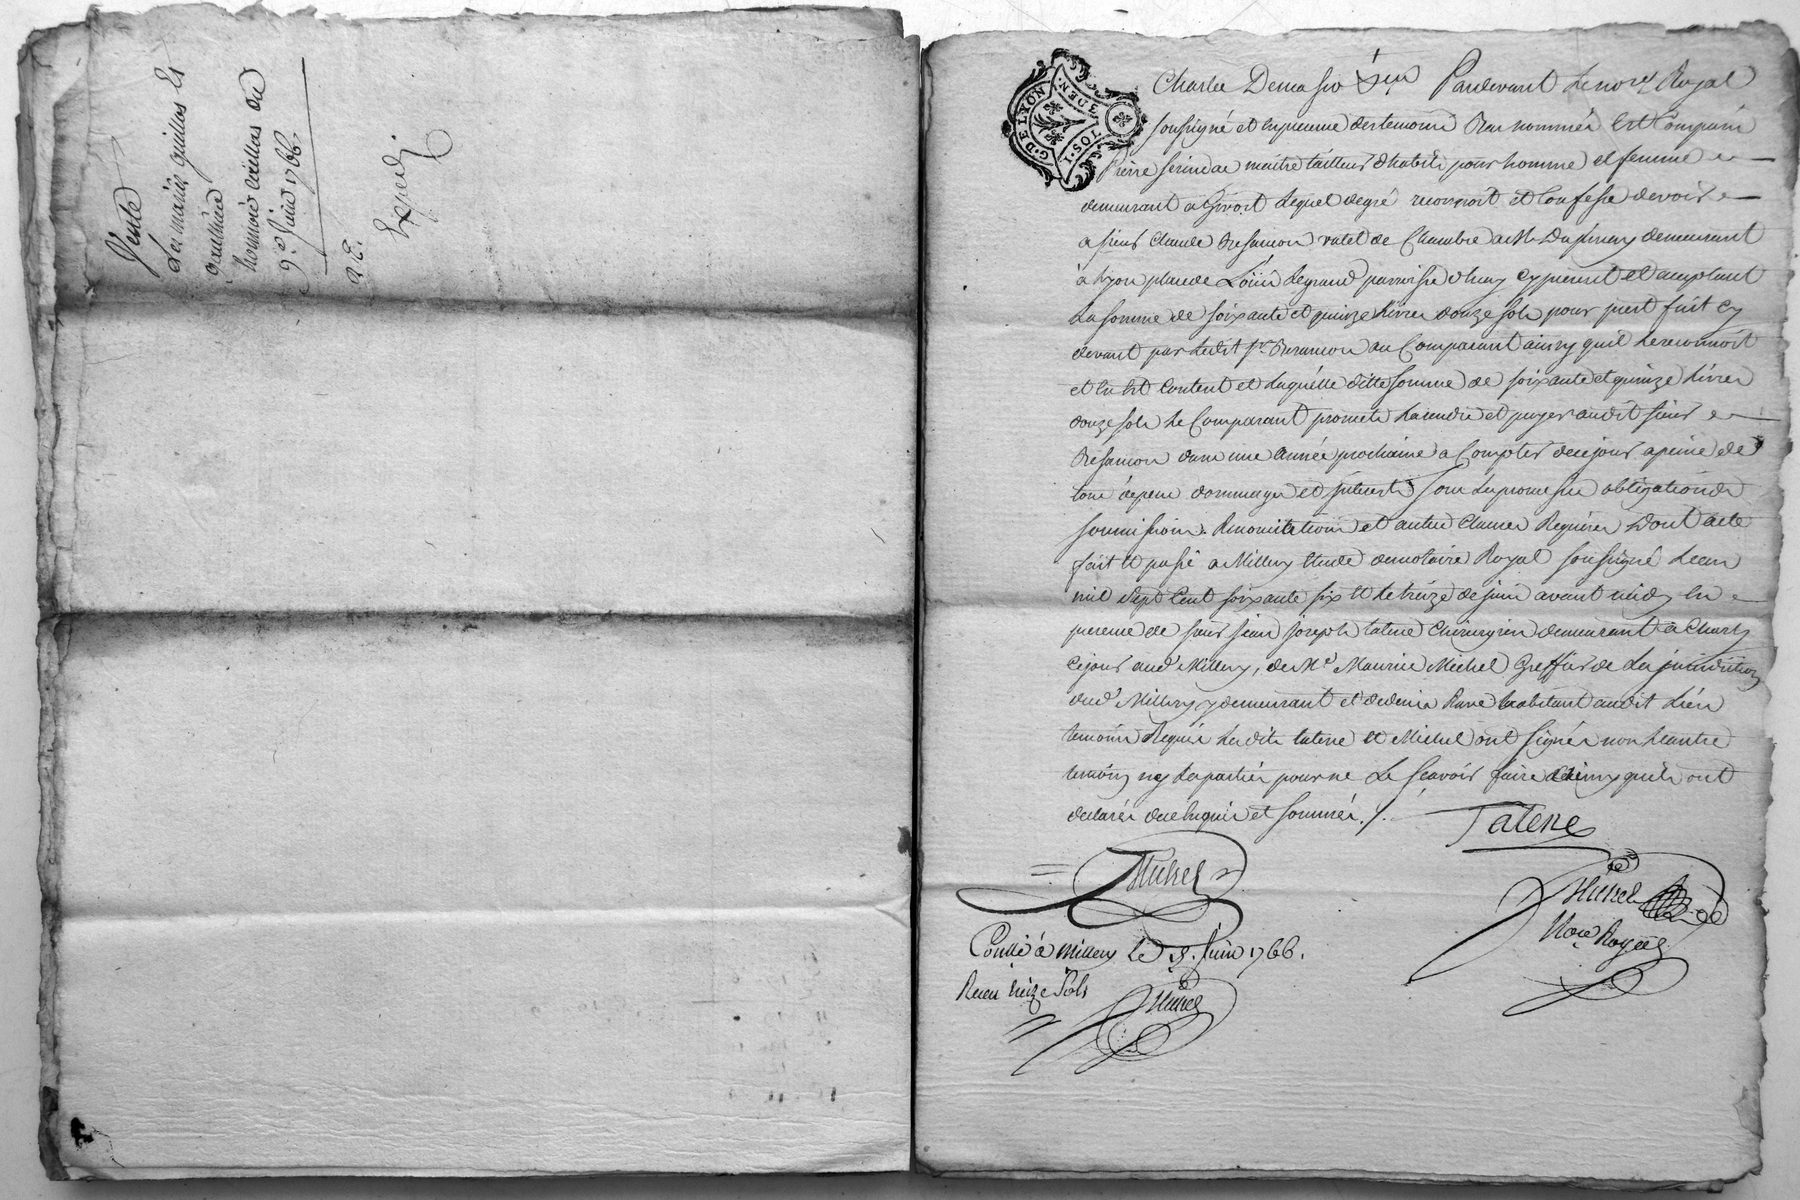 Vente
Lemariée quillas Et
gaulthier
homme dudit du
9.e Juin 1766
R.E.
Expedi
G. DE LYON
1. SOL 3 DEN.
Pardevant Le no.re Royal
soussigné et en presence des temoins Bas nommés Est Comparu
Pierre maitre tailleur d'habits pour homme et femme
demeurant a Givort Lequel de gré reconnoit et Confesse devoir
a sieur Claude Besançon valet de Chambre a M. demeurant
à Lyon place de Loüis Legrand parroisse d'henay cy present et acceptant
La somme de soixante et quinze Livres douze sols pour prest fait cy
devant par Ledit s.r Besançon au Comparant ainsy quil Le reconnoit
et En Est Content et Laquelle ditte somme de soixante et quinze Livres
douze sols Le Comparant promet La rendre et payer audit sieur
Besançon dans une Année prochaine a Compter de ce jour a peine de
tous depens dommages et Interests sous Les promesses obligations
soumissions Renonciations et autres Clauses Requises Dont acte
fait et passé a Millery Etude du notaire Royal soussigné Lean
mil sept Cent soixante six et Le treize de juin avant midy En
presence de sieur jean joseph tatene Chirurgien demeurant a Charly
Ce jour aud.t Millery, de M.e Maurice Michel Greffier de La jurisdiction
dud.t Millery y demeurant et de denis Rave habitant audit Lieu
temoins Requis Lesdits tatene et Michel ont Signés non Lautre
temoin ny Les parties pour ne Le Scavoir faire ainsy quils ont
declarés de ce Enquis et sommés ./.
Tatene
Michel
Michel
No.re Royal
Conllé à Millery Le Juin 1766.
Receu treize Sols
Michel